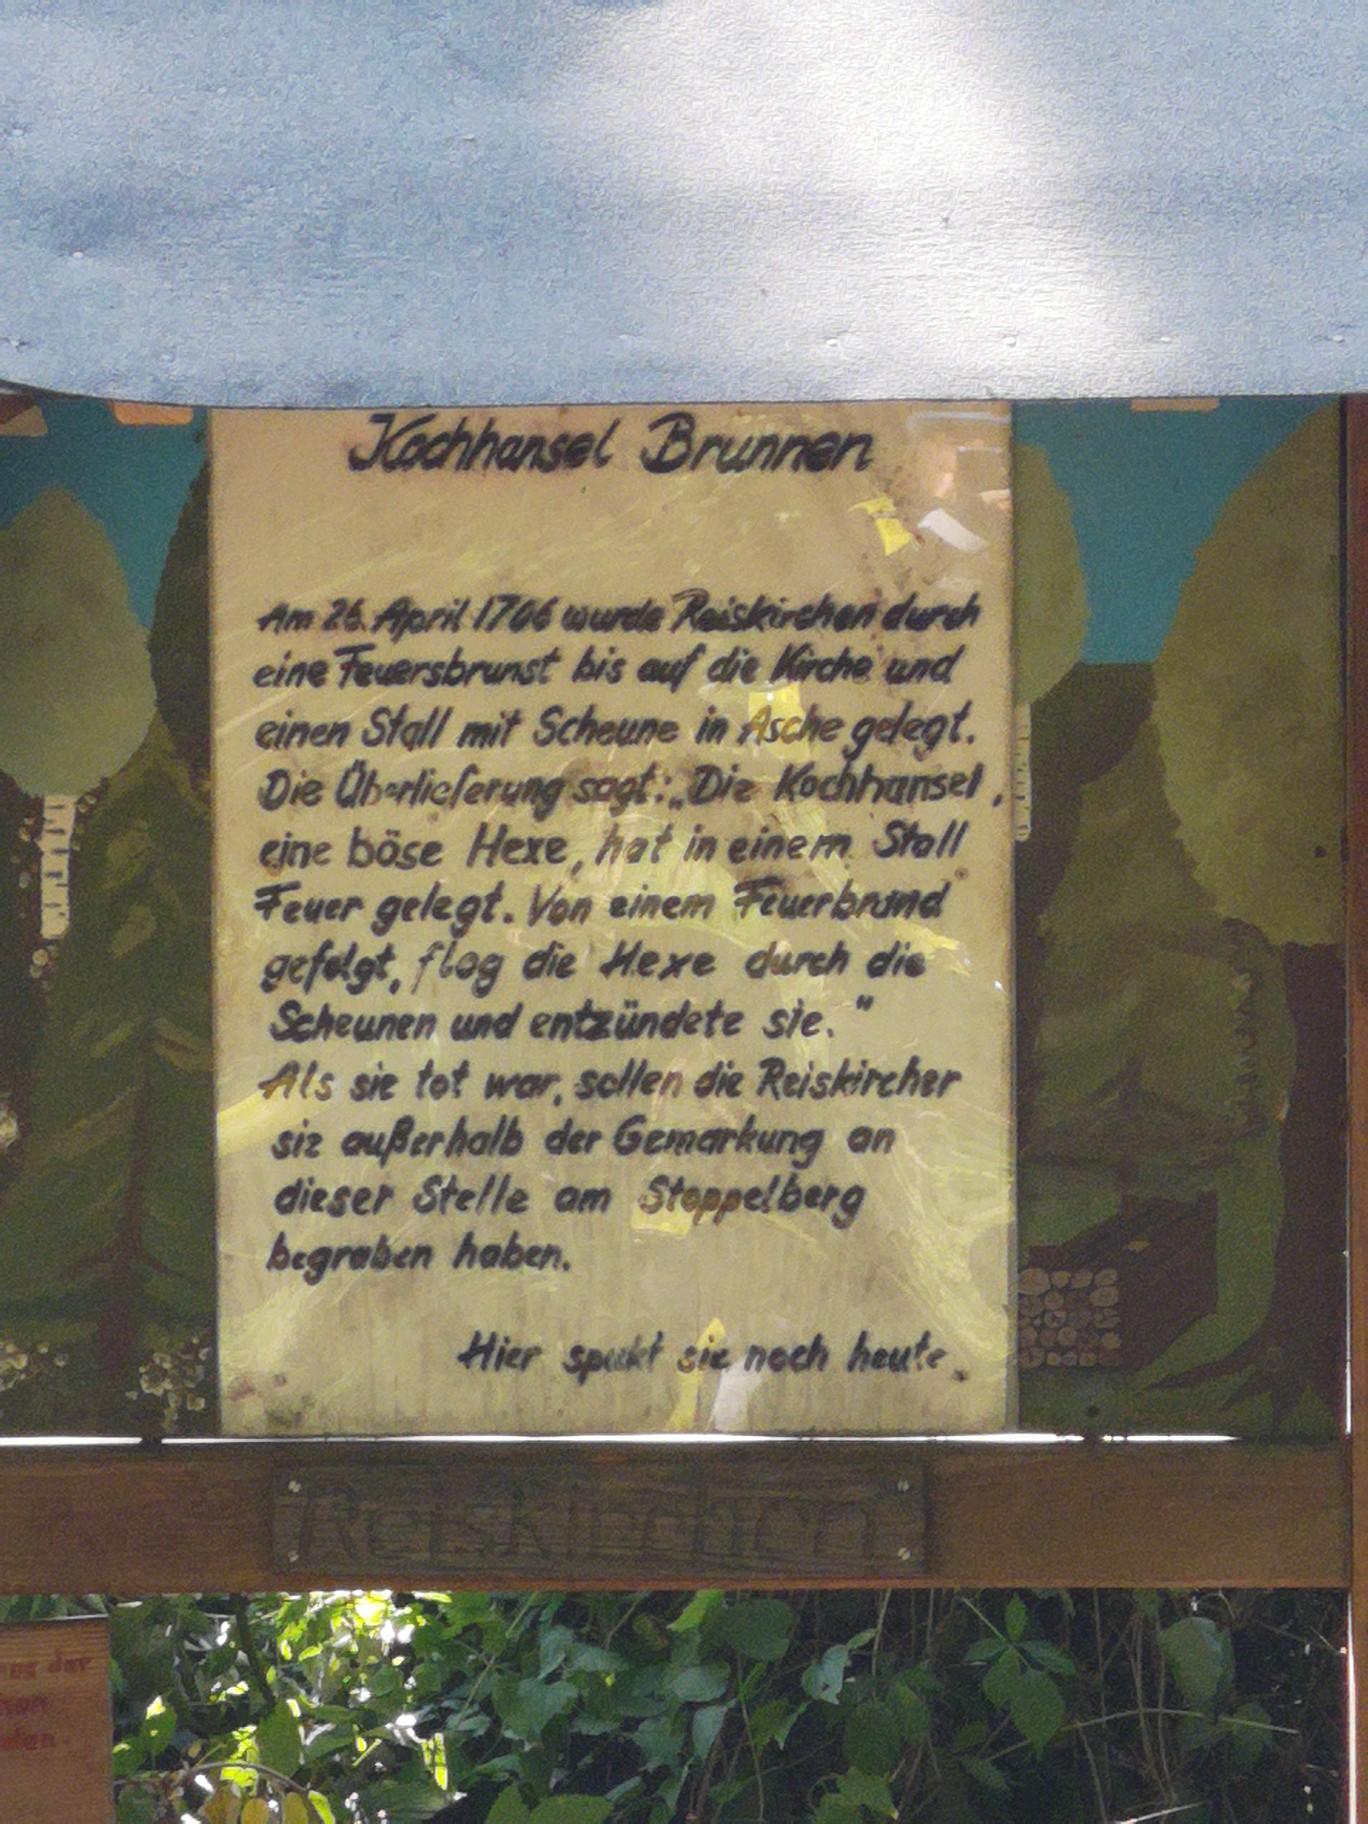 Kochhansel Brunnen
Am 26. April 1706 wurde Reiskirchen durch
eine Feuersbrunst bis auf die Kirche und
einen Stall mit Scheune in Asche gelegt.
Die Überlieferung sagt: „Die Kochhansel,
eine böse Hexe, hat in einem Stall
Feuer gelegt. Von einem Feuerbrand
gefolgt, flog die Hexe durch die
Scheunen und entzündete sie."
Als sie tot war, sollen die Reiskircher
sie außerhalb der Gemarkung an
dieser Stelle am Stoppelberg
begraben haben.
Hier spukt sie noch heute.
Reiskirchen
der